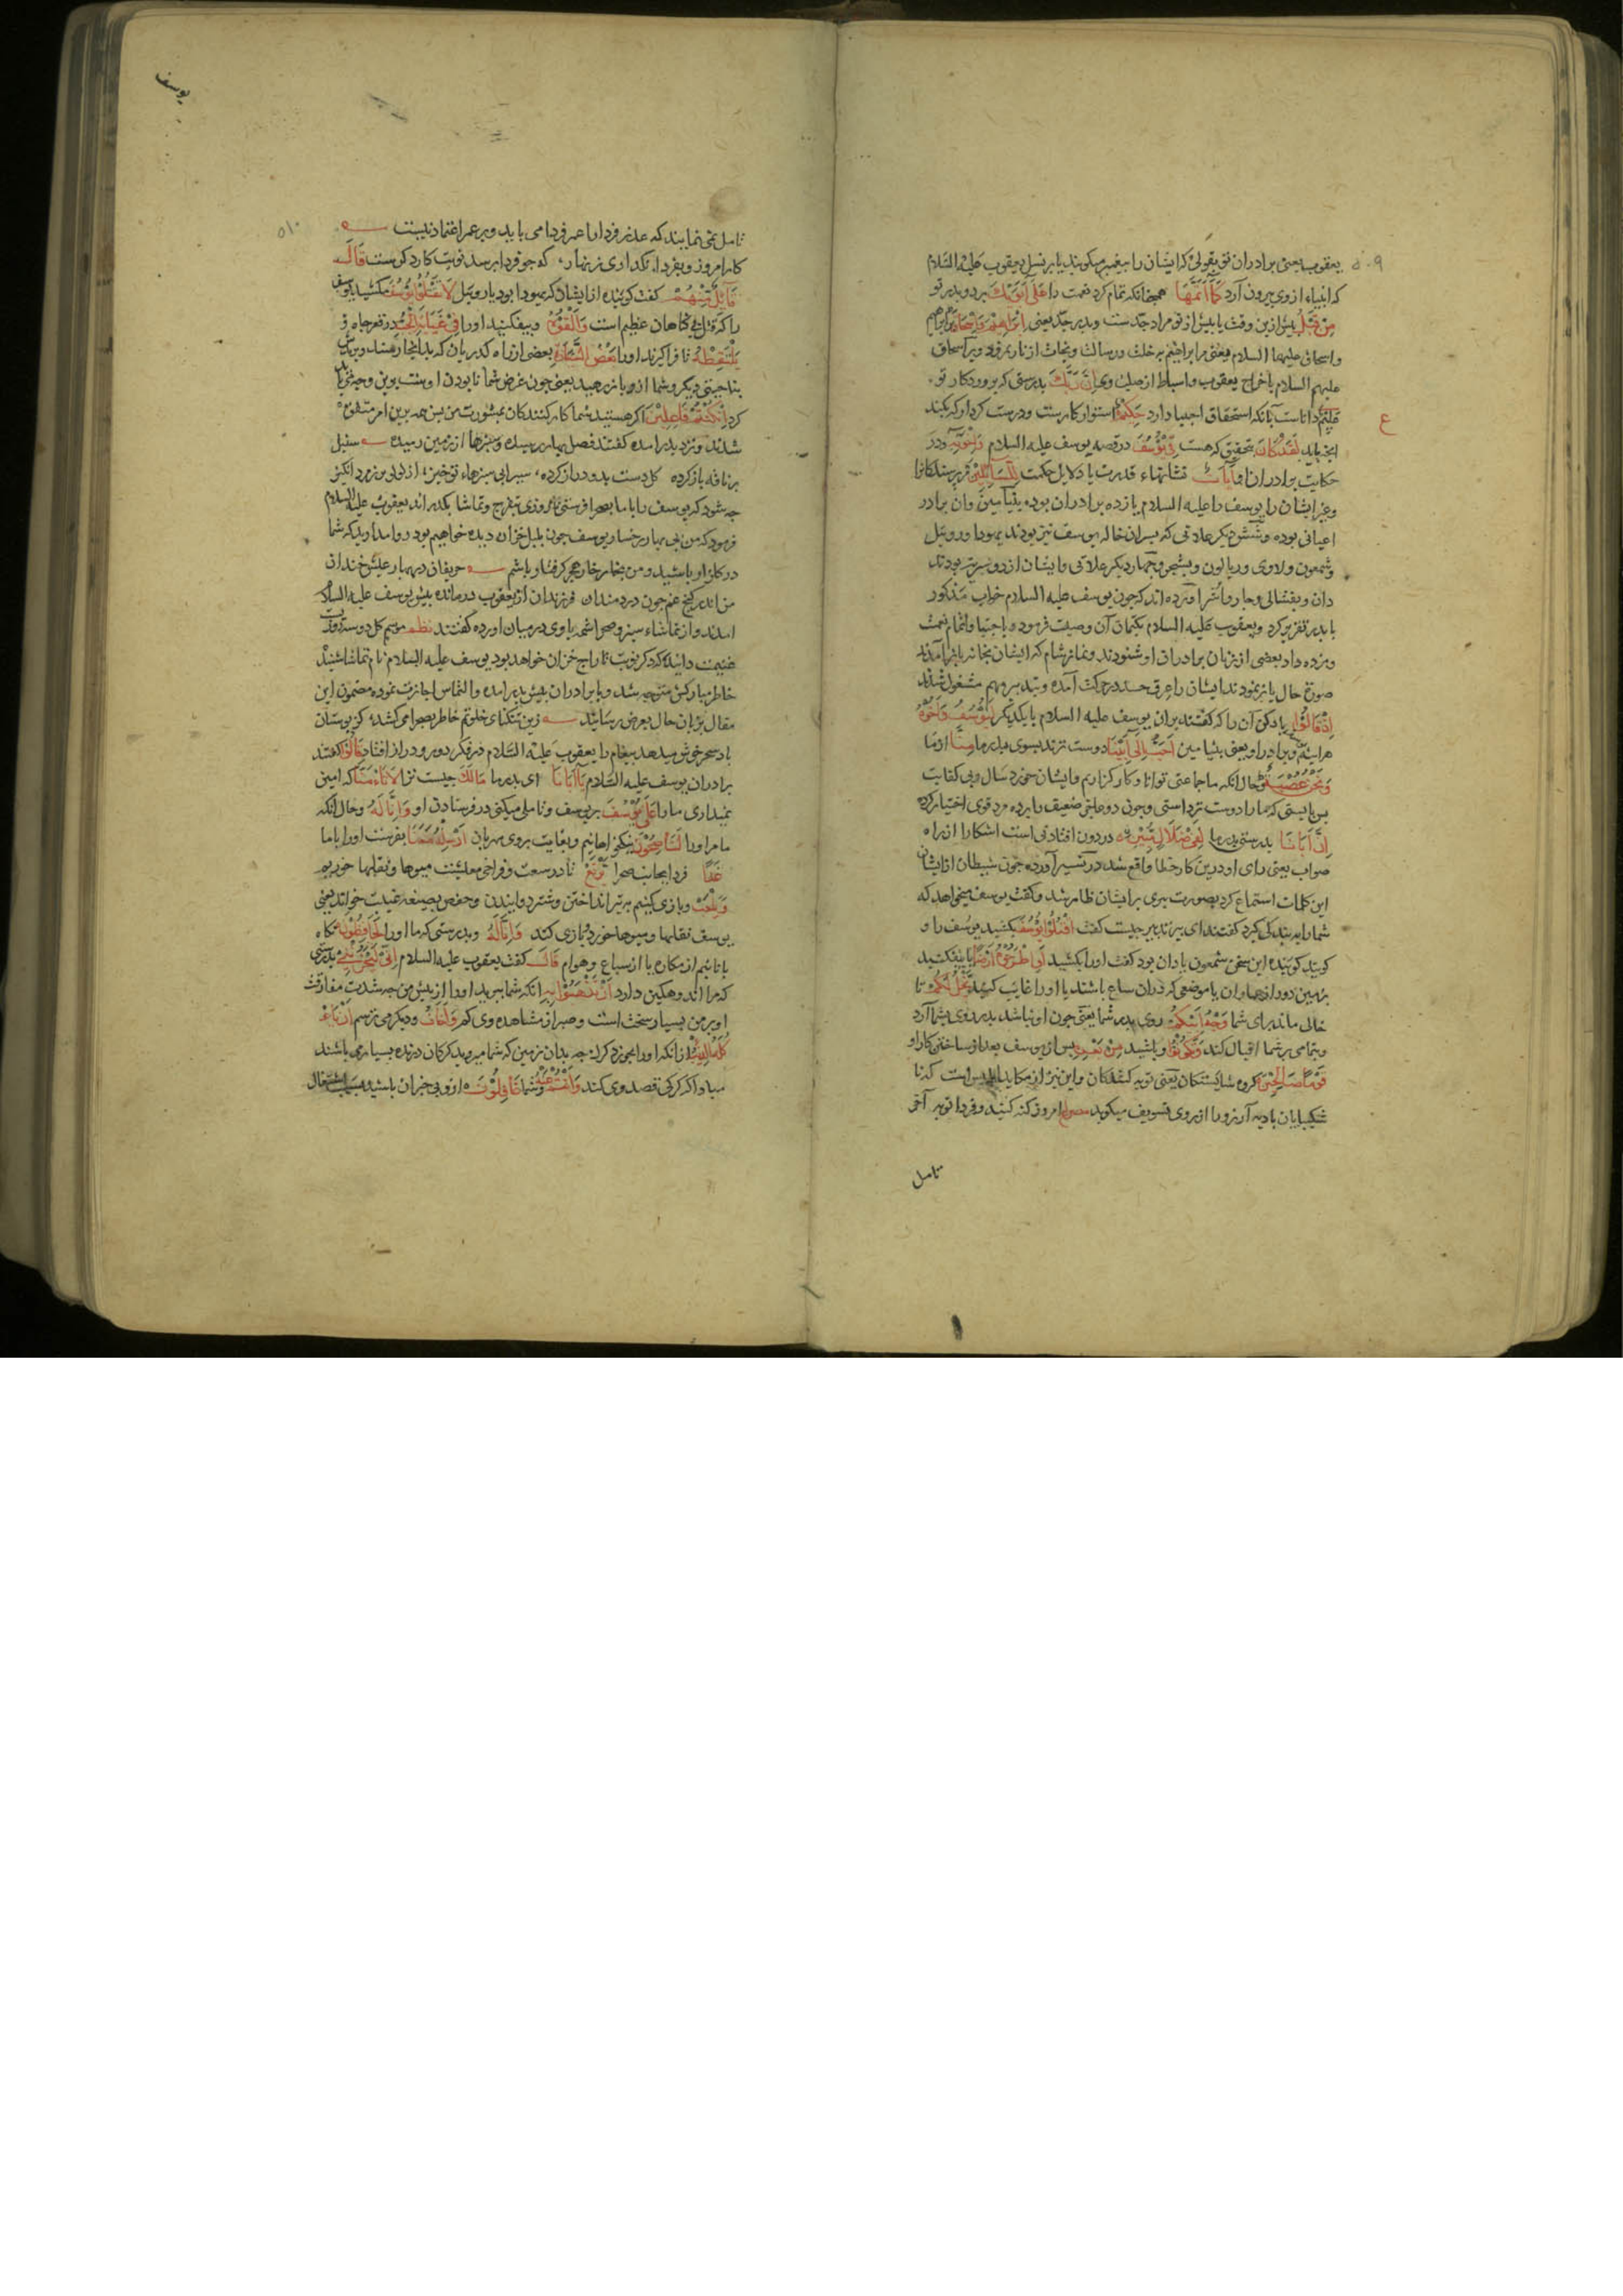 ۵۰۹
یعقوب یعنی برادران تو بقولی که ایشان را پیغمبر میکویند یا بر نسل یعقوب علیه السلام
که انبیاء از وی بیرون آرد كَمَا أَتَمَّهَا همچنانکه تمام کرد نعمت را عَلَى أَبَوَيْكَ بر دو پدر تو
مِنْ قَبْلُ پیش ازین وقت یا پیش از تو مراد جدست و پدر جد یعنی إِبْرَاهِيمَ وَإِسْحَاقَ ابراهیم
و اسحاق علیهما السلام یعنی بر ابراهیم به خلت و رسالت و نجات از نار نمرود و بر اسحاق
علیهم السلام باخراج یعقوب و اسباط از صلب وی إِنَّ رَبَّكَ بدرستی که پروردکار تو
عَلِيمٌ داناست بآنکه استحقاق اجتبا دارد حَكِيمٌ استوار کارست و درست کردار که بکند
ع
انچه باید لَقَدْ كَانَ بتحقیق که هست فِي يُوسُفَ در قصه یوسف علیه السلام وَإِخْوَتِهِ و در
حکایت برادران او آيَاتٌ نشانهاء قدرت یا دلایل حکمت لِلسَّائِلِينَ مر پرسندکانرا
و غیر ایشان را یوسف را علیه السلام یازده برادران بوده بنیامین وان برادر
اعیانی بوده و شش دیکر علاتی که پسران خاله یوسف نیز بودند یهودا و روبیل
و شمعون و لاوی و ریالون و یشجر و چهار دیکر علاتی وایشان از دو سریه بودند
دان و یفتالی و جاد و آشر آورده اند که چون یوسف علیه السلام خواب مذکور
با پدر تقریر کرد و یعقوب علیه السلام بکتمان آن وصیت فرمود و باجتبا و اتمام نعمت
مژده داد بعضی از زنان برادران او شنودند و نماز شام که ایشان بخانه باز آمدند
صورة حال باز نمودند ایشان را عرق حسد در حرکت آمده و تدبیر مهم مشغول شدند
إِذْ قَالُوا یاد کن آن را که کفتند برادران یوسف علیه السلام با یکدیکر لَيُوسُفُ وَأَخُوهُ
هراینه یوسف و برادر او یعنی بنیامین أَحَبُّ إِلَى أَبِينَا دوست ترند بسوی پدر ما مِنَّا از ما
وَنَحْنُ عُصْبَةٌ و حال انکه ما جماعتی توانا و کارکزاریم وایشان خرد سال و بی کفایت
پس بایستی که ما را دوست تر داشتی و چون دو طفل ضعیف را بر ده مرد قوی اختیار کرده
إِنَّ أَبَانَا بدرستی پدر ما لَفِي ضَلَالٍ مُبِينٍ در دور افتادنی است اشکارا از راه
صواب یعنی رای او درین کار خطا واقع شده در تفسیر آورده چون شیطان از ایشان
این کلمات استماع کرد بصورت پیری برایشان ظاهر شد و کفت یوسف میخواهد که
شما را به بندکی کیرد کفتند ای پیر تدبیر چیست کفت اقْتُلُوا يُوسُفَ بکشید یوسف را و
کویند کوینده این سخن شمعون یا دان بود کفت اورا بکشید أَوِ اطْرَحُوهُ أَرْضًا یا بیفکنید
بزمین دور از عمران یا موضعی که دران سباع باشند یا او را غایب کرداند يَخْلُ لَكُمْ تا
خالی ماند برای شما وَجْهُ أَبِيكُمْ روی پدر شما یعنی چون او نباشد پدر روی بشما آرد
و بتمامی بر شما اقبال کند وَتَكُونُوا و باشید مِنْ بَعْدِهِ پس از یوسف بعد از ساختن کار او
قَوْمًا صَالِحِينَ کروه شایستکان یعنی توبه کنندکان و این نیز از مکاید ابلیس است که تا
شکیبایان بادیه آرزو را از روی تسویف میکوید مصراع امروز کنه کنید و فردا توبه آخر
تامل
یوسف
۵۱۰
تامل نمی نمایند که عذر فردا را عمر فردا می باید و بر عمر اعتماد نیست
کار امروز بفردا نکذاری زنهار که چو فردا برسد نوبت کار دکرست قَالَ
قَائِلٌ مِنْهُمْ کفت کوینده از ایشان که یهودا بود یا روبیل لَا تَقْتُلُوا يُوسُفَ مکشید یوسف
را که قتل بی کناهان عظیم است وَأَلْقُوهُ و بیفکنید اورا فِي غَيَابَتِ الْجُبِّ در قعر چاه
يَلْتَقِطْهُ تا فرا کیرند او را بَعْضُ السَّيَّارَةِ بعضی از راه کذریان که بدانجا رسند و برند
بناحیتی دیکر و شما از و باز رهید یعنی چون غرض شما نابودن اوست برین وجه
کرد إِنْ كُنْتُمْ فَاعِلِينَ اکر هستید شما کار کنندکان بمشورت من پس همه برین امر متفق
شدند و نزد پدر امده کفتند فصل بهار رسیده و سبزها از زمین دمیده سنبل
سر نافه باز کرده کل دست بدو دراز کرده سیرابی سبزهاء نوخیز از لولو تر زمرد انکیز
چه شود که یوسف را با ما بصحرا فرستی تا روزی بتفرج و تماشا بکذراند یعقوب علیه السلام
فرمود که من بی بهار رخسار یوسف چون بلبل خزان دیده خواهم بود روا مدارید که شما
در کلزار باشید و من بخار خار هجر کرفتار باشم حریفان در بهار عیش خندان
من اندر کنج غم چون دردمندان فرزندان از یعقوب درمانده پیش یوسف علیه السلام
امدند و از تماشاء سبزه و صحرا شمه با وی در میان آورده کفتند نظم موسم کل دو سه روزست
غنیمت دانید که دکر نوبت تاراج خزان خواهد بود یوسف علیه السلام نام تماشا شنید
خاطر مبارکش متوجه شد و با برادران پیش پدر امده و التماس اجازت نموده مضمون این
مقال بزبان حال بعرض رسانید زین تنکنای خلوتم خاطر بصحرا می کشد کز بوستان
باد سحر خوش میدهد پیغام را یعقوب علیه السلام در فکر دور و دراز افتاد قَالُوا کفتند
برادران یوسف علیه السلام يَا أَبَانَا ای پدر ما مَا لَكَ چیست ترا لَا تَأْمَنَّا که امین
نمیداری ما را عَلَى يُوسُفَ بر یوسف و تامل میکنی در فرستادن او وَإِنَّا لَهُ و حال آنکه
ما مر اورا لَنَاصِحُونَ نیکو خواهانیم و بغایت بروی مهربان أَرْسِلْهُ مَعَنَا بفرست اورا با ما
غَدًا فردا بجانب صحرا نَرْتَعْ تا در سعت و فراخی معیشت میوها و نقلها خوریم
وَنَلْعَبْ و بازی کنیم به تیر انداختن و شتر دوانیدن و حفص بصیغه غیبت خواند یعنی
یوسف نقلها و میوها خورد و بازی کند وَإِنَّا لَهُ و بدرستی که ما اورا لَحَافِظُونَ نکاه
بانانیم از مکاره یا از سباع و هوام قَالَ کفت یعقوب علیه السلام إِنِّي لَيَحْزُنُنِي بدرستی
که مرا اندوهکین دارد أَنْ تَذْهَبُوا بِهِ انکه شما ببرید اورا از پیش من چه شدت مفارقت
او بر من بسیار سخت است و صبر از مشاهده وی کم وَأَخَافُ و دیکر می ترسم أَنْ يَأْ
كُلَهُ الذِّئْبُ از انکه اورا بخورد کرک چه بدان زمین که شما میروید کرکان درنده بسیار می باشند
مبادا که کرکی قصد وی کند وَأَنْتُمْ عَنْهُ و شما غَافِلُونَ از و بی خبران باشید بسبب اشتغال